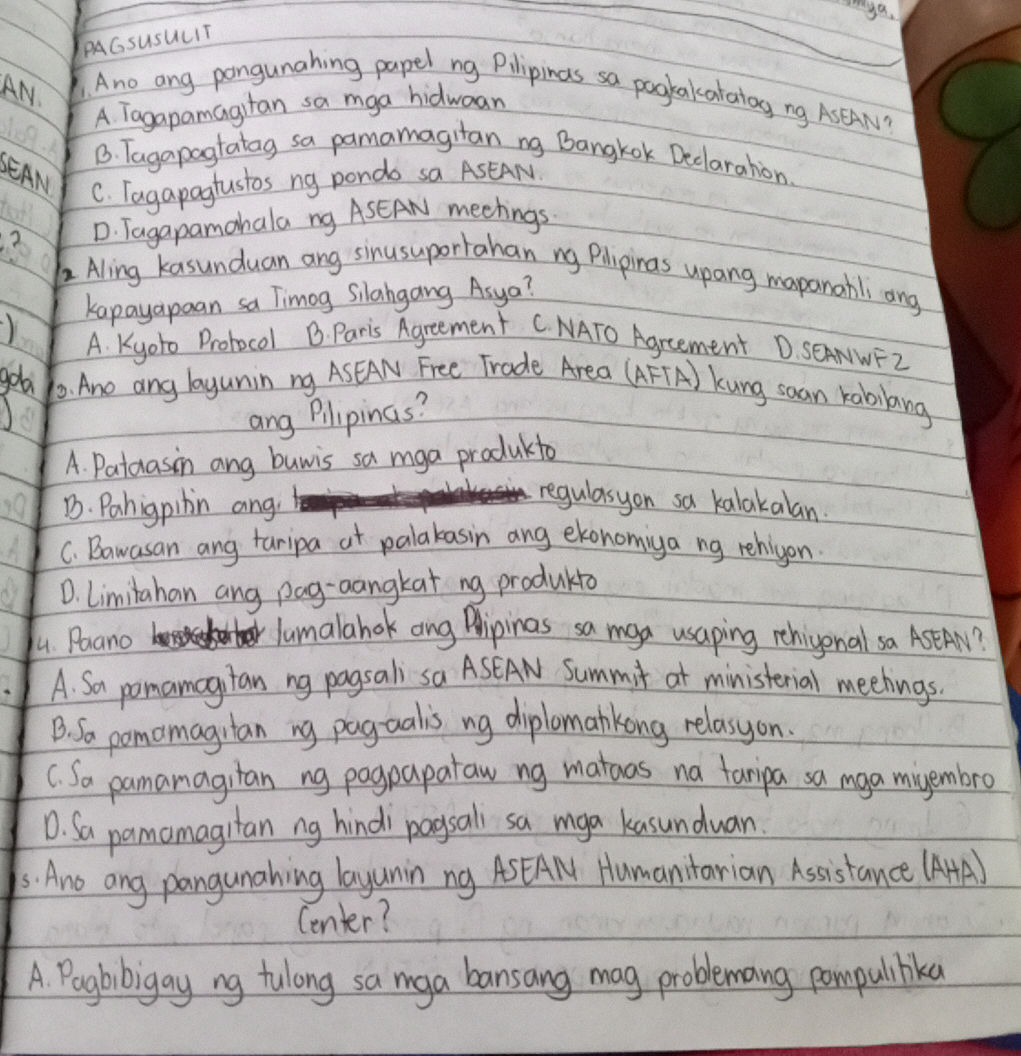 mya.
PAGSUSULIT
1. Ano ang pangunahing papel ng Pilipinas sa pagkakatatag ng ASEAN?
A. Tagapamagitan sa mga hidwaan
B. Tagapagtatag sa pamamagitan ng Bangkok Declaration.
C. Tagapagtustos ng pondo sa ASEAN.
D. Tagapamahala ng ASEAN meetings.
2 Aling kasunduan ang sinusuportahan ng Pilipinas upang mapanatili ang
kapayapaan sa Timog Silahgang Asya?
A. Kyoto Protocol B. Paris Agreement C. NATO Agreement D. SEANWFZ
3. Ano ang layunin ng ASEAN Free Trade Area (AFTA) kung saan kabilang
ang Pilipinas?
A. Pataasin ang buwis sa mga produkto
B. Pahigpitin ang regulasyon sa kalakalan.
C. Bawasan ang taripa at palakasin ang ekonomiya ng rehiyon.
D. Limitahan ang pag-aangkat ng produkto
4. Paano lumalahok ang Pilipinas sa mga usaping rehiyonal sa ASEAN?
A. Sa pamamagitan ng pagsali sa ASEAN Summit at ministerial meetings.
B. Sa pamamagitan ng pag-aalis ng diplomatikong relasyon.
C. Sa pamamagitan ng pagpapataw ng mataas na taripa sa mga miyembro
D. Sa pamamagitan ng hindi pagsali sa mga kasunduan.
5. Ano ang pangunahing layunin ng ASEAN Humanitarian Assistance (AHA)
Center?
A. Pagbibigay ng tulong sa mga bansang mag problemang pampulitika
AN.
SEAN
?
)